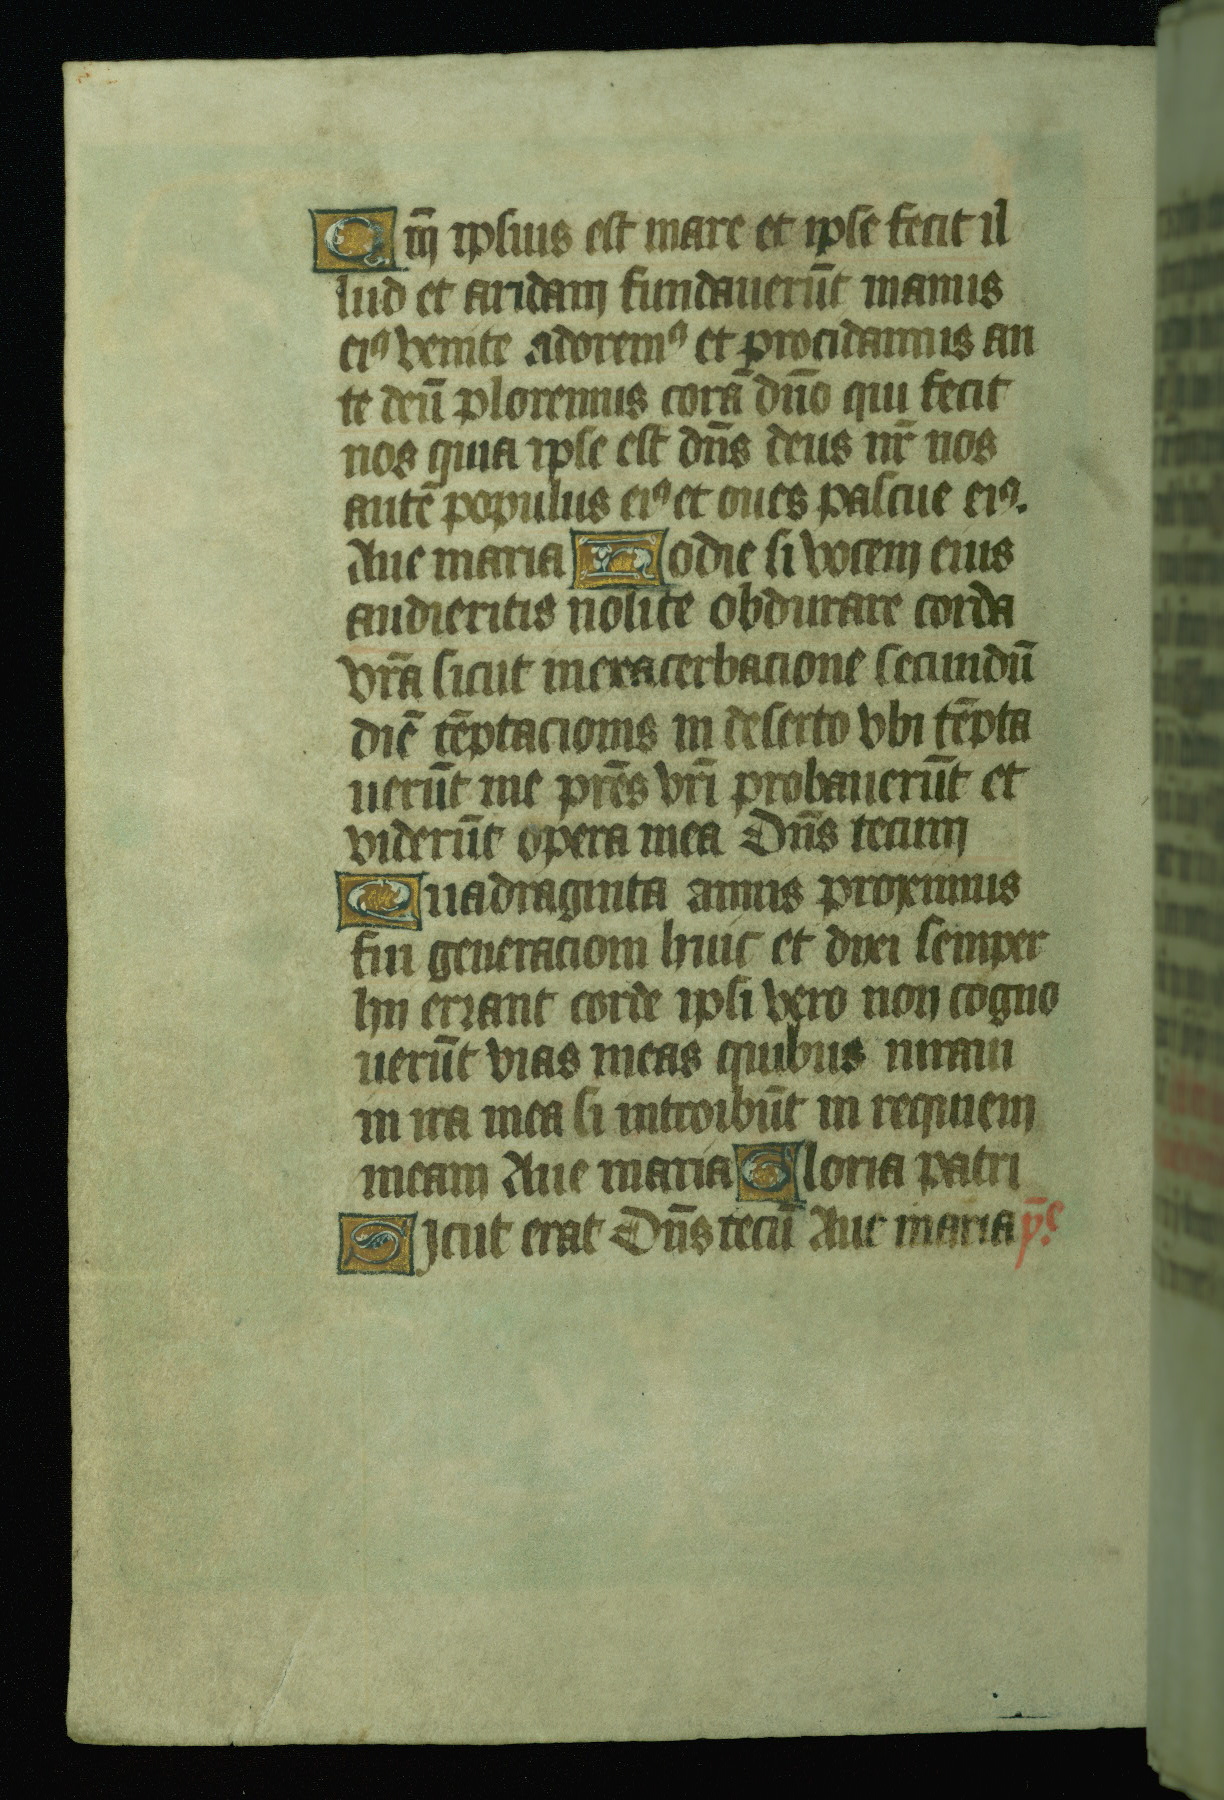 Qm̄ ipsius est mare et ipse fecit il
lud et aridam fundauerūt manus
eiꝰ venite adoremꝰ et procidamus an
te deū ploremus corā dn̄o qui fecit
nos quia ipse est dn̄s deus nr̄ nos
autē populus eiꝰ et oues pascue eiꝰ.
Aue maria Hodie si vocem eius
audieritis nolite obdurare corda
vr̄a sicut in exacerbacione secundū
diē tēptacionis in deserto vbi tēpta
uerūt me pr̄es vr̄i probauerūt et
viderūt opera mea Dn̄s tecum
Quadraginta annis proximus
fui generacioni huic et dixi semper
hii errant corde ipsi vero non cogno
uerūt vias meas quibus iuraui
in ira mea si introibūt in requiem
meam Aue maria Gloria patri
Sicut erat Dn̄s tecū Aue maria